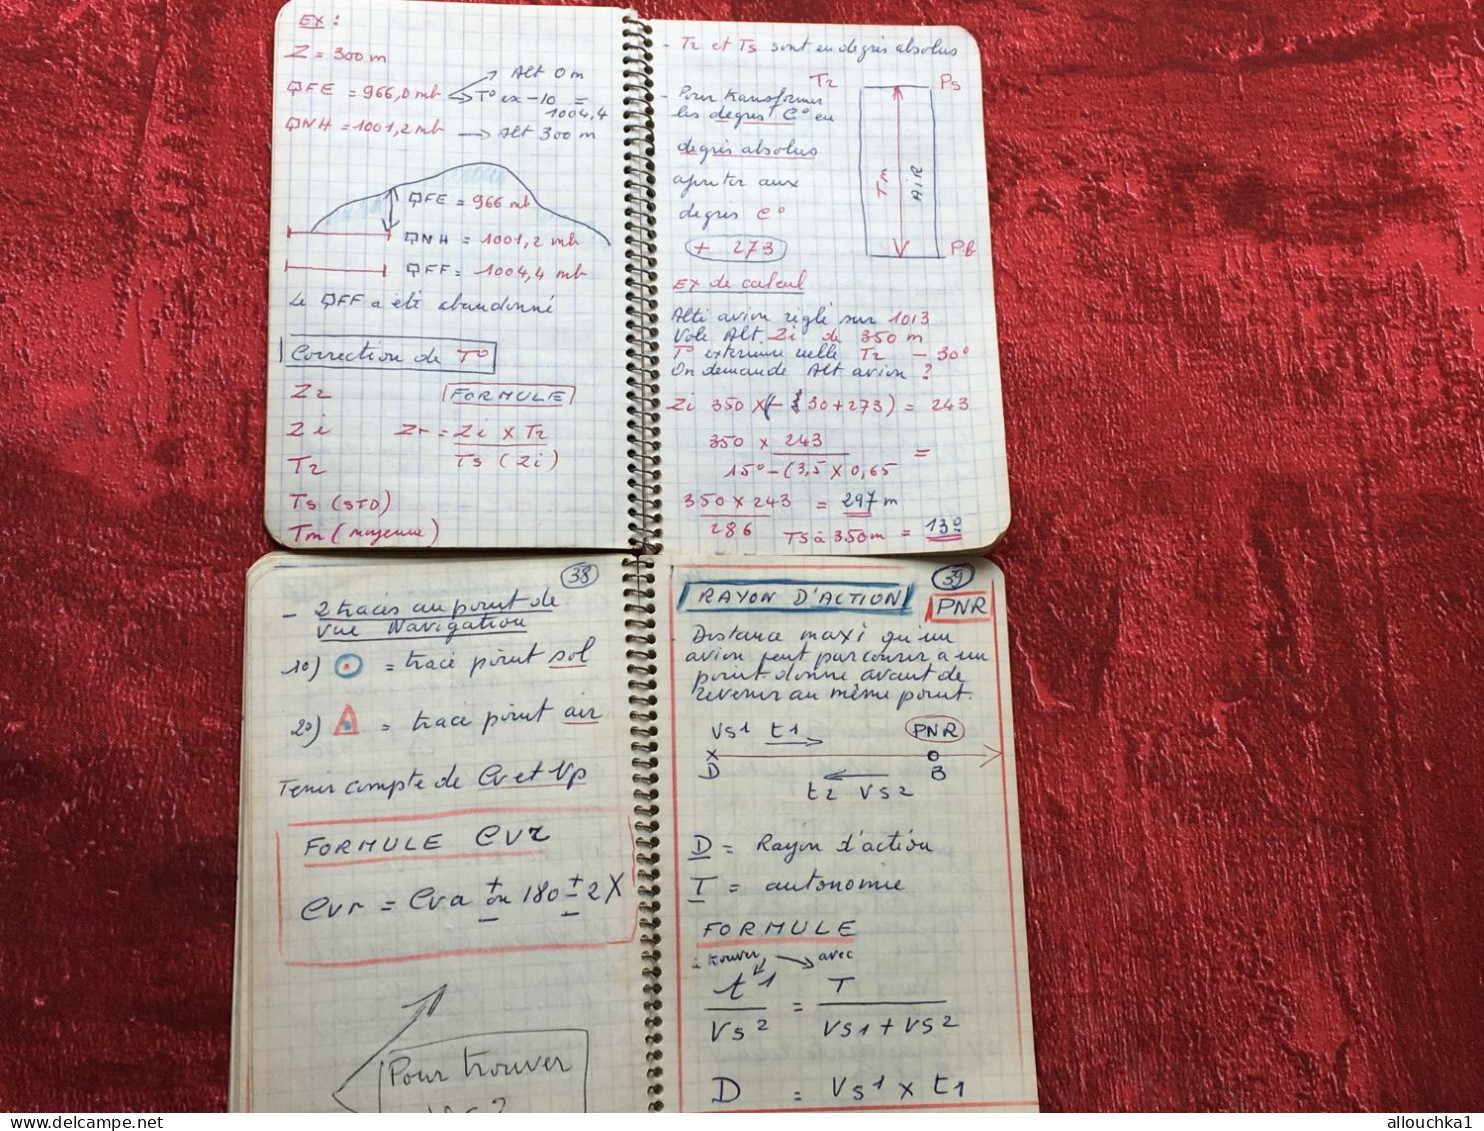 EX :
Z = 300 m
QFE = 966,0 mb
Alt 0 m
T° ex -10 =
1004,4
QNH = 1001,2 mb → Alt 300 m
QFE = 966 mb
QNH = 1001,2 mb
QFF = 1004,4 mb
Le QFF a été abandonné
Correction de T°
Zr
FORMULE
Zi
Zr = Zi x Tr
Ts (Zi)
Tr
Ts (STD)
Tm (moyenne)
- Tr et Ts sont en degrés absolus
Tr
Ps
- Pour transformer
les degrés C° en
degrés absolus
ajouter aux
degrés C°
+ 273
Tm
AIR
Pb
EX de calcul
Alti avion réglé sur 1013
Vole Alt. Zi de 350 m
T° extérieure réelle Tr - 30°
On demande Alt avion ?
Zi 350 x (- 30 + 273) = 243
350 x 243 =
15° - (3,5 x 0,65
350 x 243 = 297 m
286
Ts à 350 m = 13°
38
- 2 tracés au point de
vue Navigation
1°) = tracé point sol
2°) = tracé point air
Tenir compte de Cv et Vp
FORMULE Cvr
Cvr = Cva + ou - 180 ± 2X
Pour trouver
39
RAYON D'ACTION
PNR
Distance maxi qu'un
avion peut parcourir à un
point donné avant de
revenir au même point.
Vs1 t1
PNR
X
D
B
t2 Vs2
D = Rayon d'action
T = autonomie
FORMULE
à trouver → avec
t1 = T
Vs2 Vs1 + Vs2
D = Vs1 x t1
allouchka1